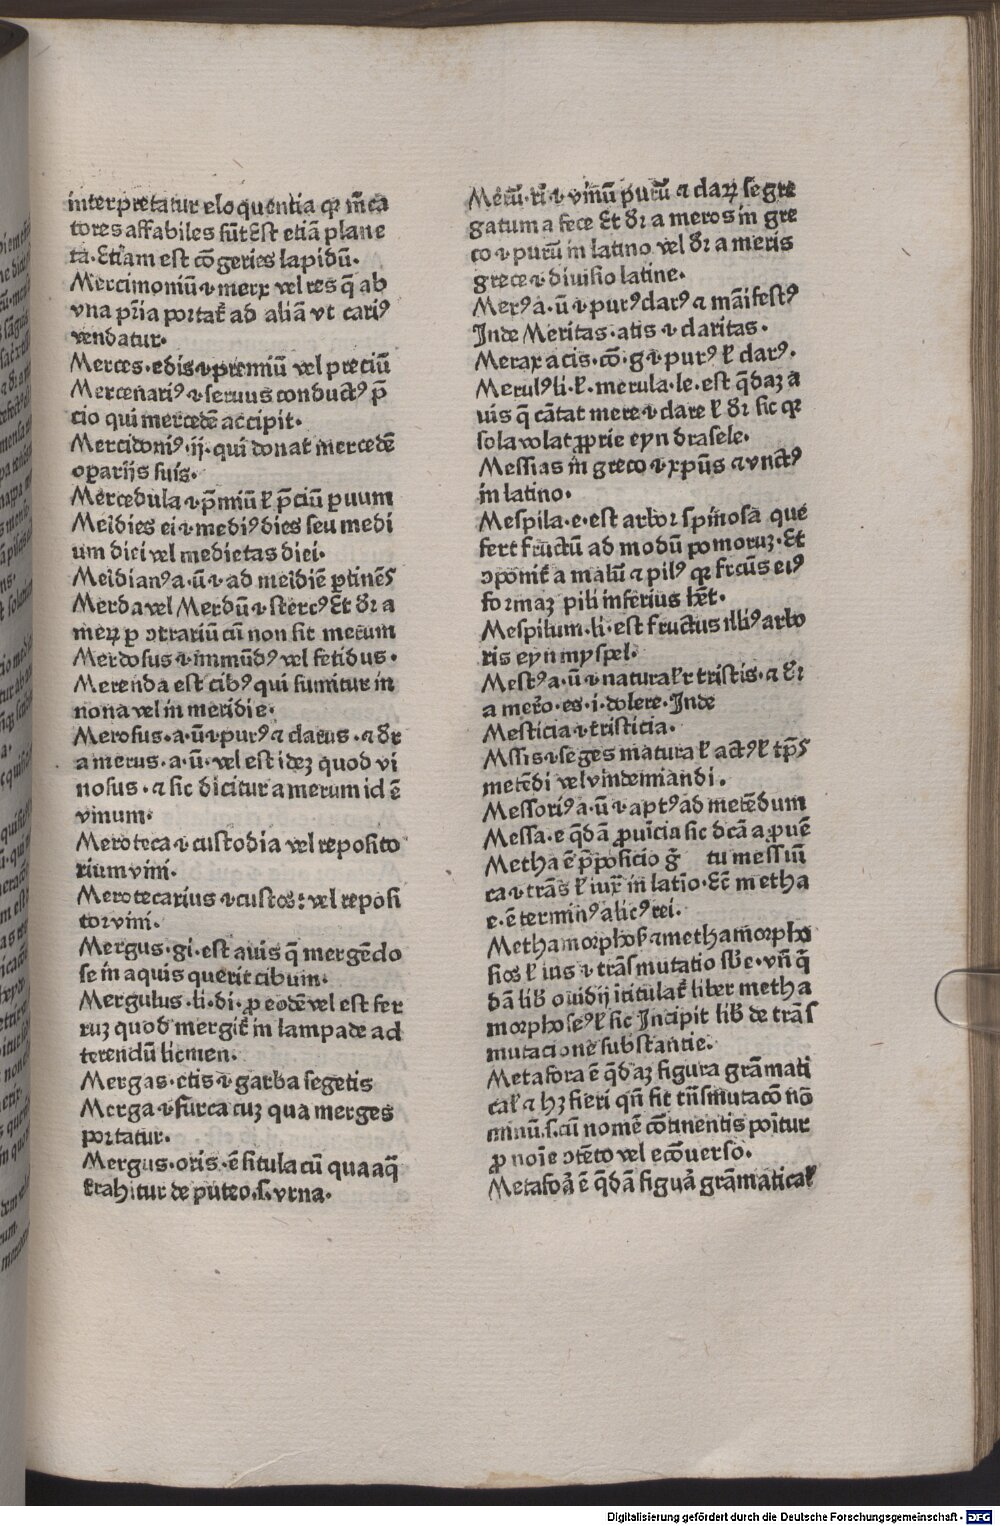 interpretatur eloquentia qꝛ m̄ca
tores affabiles sūt Est etiā plane
ta. Etiam est cōgeries lapidū.
Mercimoniū ꝛ merx vel res q̄ ab
vna pr̄ia portat̄ ad aliā vt cariꝰ
vendatur.
Merces.edis ꝛ premiū vel preciū
Mercenariꝰ ꝛ seruus conductꝰ p̄
cio qui mercedē accipit.
Mercidoniꝰ.ij.qui donat mercedē
oꝑarijs suis.
Mercedula ꝛ p̄miū ł p̄ciū ꝑuum
Meidies ei ꝛ mediꝰ dies seu medi
um diei vel medietas diei.
Meidianꝰ a.ū ꝛ ad meidiē ꝑtinēs
Merda vel Merdū ꝛ stercꝰ Et dr̄ a
meꝝ ꝑ ↄtrariū cū non sit merum
Merdosus ꝛ immūdꝰ vel fetidus.
Merenda est cibꝰ qui sumitur in
nona vel in meridie.
Merosus.a.ū ꝛ purꝰ ⁊ clarus.⁊ dr̄
a merus.a.ū.vel est ideꝫ quod vi
nosus.⁊ sic dicitur a merum id ē
vinum.
Meroteca ꝛ custodia vel reposito
rium vini.
Merotecarius ꝛ custos: vel reposi
tor vini.
Mergus.gi.est auis q̄ mergēdo
se in aquis querit cibum.
Mergulus.li.di.ꝓ eodē vel est fer
ruꝫ quod mergit̄ in lampade ad
terendū licmen.
Mergas.etis ꝛ garba segetis
Merga ꝛ furca cuꝫ qua merges
portatur.
Mergus.oris.ē situla cū qua aq̄
trahitur de puteo.s.vrna.
Merū.ri.ꝛ vinū purū ⁊ claꝝ segre
gatum a fece Et dr̄ a meros in gre
co ꝛ purū in latino vel dr̄ a meris
grece ꝛ diuisio latine.
Merꝰ a.ū ꝛ purꝰ clarꝰ ⁊ māifestꝰ
Inde Meritas.atis ꝛ claritas.
Merax acis.cō.g ꝛ purꝰ ł clarꝰ.
Merulꝰ li.ł.merula.le.est q̄daꝫ a
uis q̄ cātat mere ꝛ clare ł dr̄ sic qꝛ
sola volat ꝓprie eyn drasele.
Messias in greco ꝛ xp̄us ⁊ vnctꝰ
in latino.
Mespila.e.est arbor spinosa que
fert fructū ad modū pomoruꝫ.Et
ↄponit̄ a malū ⁊ pilꝰ qꝛ frcūs eiꝰ
formaꝫ pili inferius hēt.
Mespilum.li.est fructus illiꝰ arbo
ris eyn myspel.
Mestꝰ a.ū ꝛ naturalr̄ tristis.⁊ dr̄
a mero.es.i.dolere.Inde
Mesticia ꝛ tristicia.
Mssis ꝛ seges matura ł actꝰ ł tp̄s
metēdi vel vindemiandi.
Messoriꝰ a.ū ꝛ aptꝰ ad metēdum
Messa.e q̄dā ꝓuīcia sic dcā a ꝓuē
Metha ē p̄posicio ḡ tu messiū
ca ꝛ trās ł iux̄ in latīo.Ec̄ metha
e.ē terminꝰ alicꝰ rei.
Methamorphoß ⁊ methamorpho
sios ł ius ꝛ trāsmutatio sb̄e.vn̄ q̄
dā lib̄ ouidij ītitulat̄ liber metha
morphoseꝰ ł sic Incipit lib̄ de trās
mutacione substantie.
Metafora ē q̄daꝫ figura grāmati
cał ⁊ hꝫ fieri qn̄ fit trīsmutacō nō
minū.s.cū nomē cōtinentis poītur
ꝓ noīe ↄtēto vel ecōuerso.
Metafoā ē q̄dā figuā grāmaticał
Digitalisierung gefördert durch die Deutsche Forschungsgemeinschaft - DFG